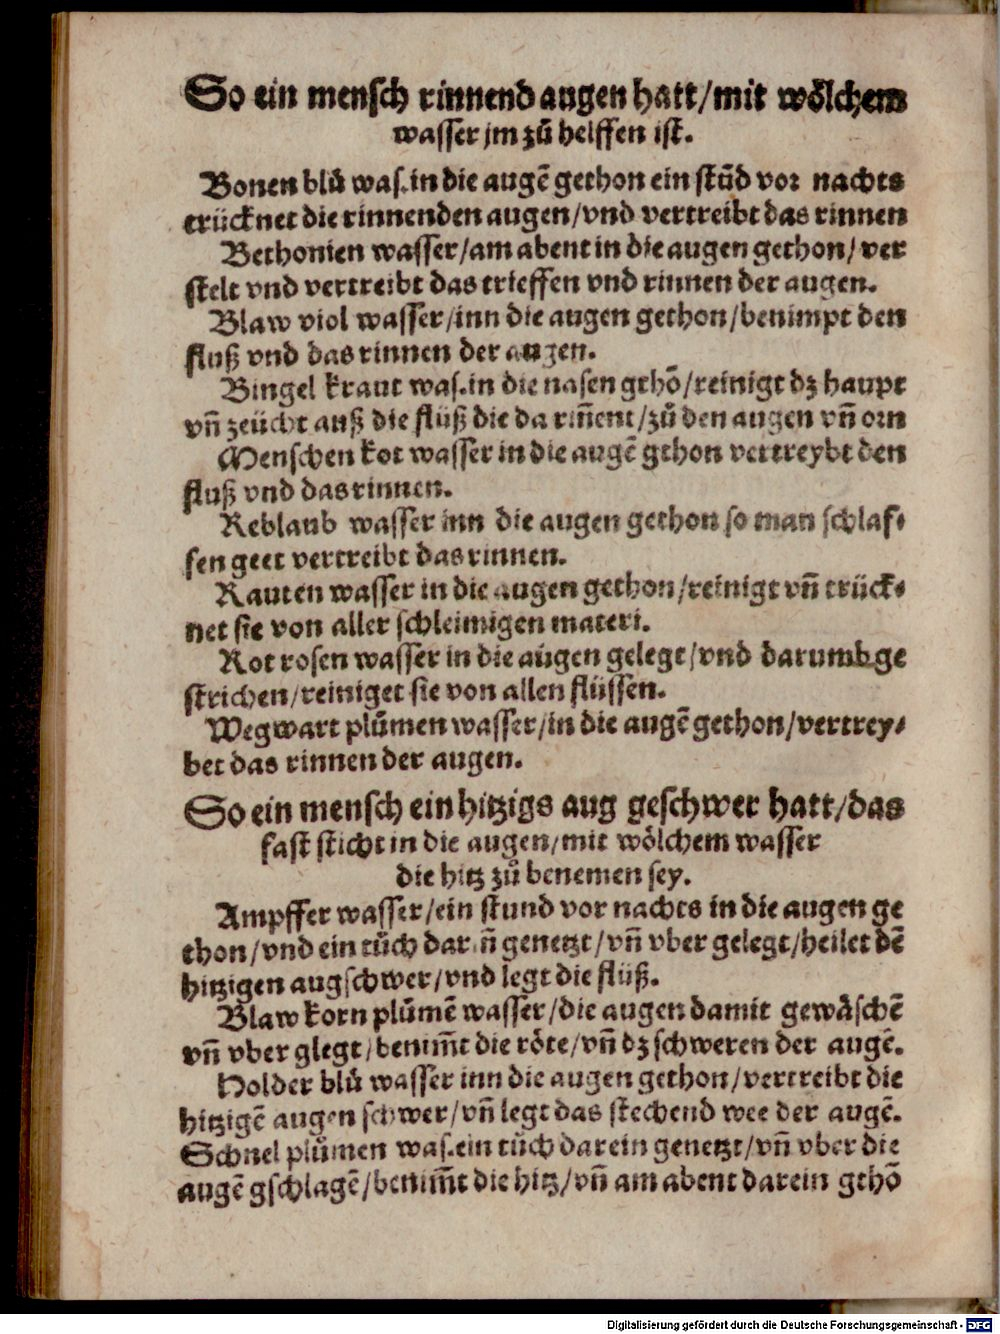 So ein mensch rinnend augen hatt/mit woͤlchem
wasser jm zuͦ helffen ist.
Bonen bluͦ was.in die augē gethon ein stūd vor nachts
trücknet die rinnenden augen/vnd vertreibt das rinnen
Bethonien wasser/am abent in die augen gethon/ ver
stelt vnd vertreibt das trieffen vnd rinnen der augen.
Blaw viol wasser/inn die augen gethon/benimpt den
fluß vnd das rinnen der augen.
Bingel kraut was.in die nasen gthō/reinigt dz haupt
vn̄ zeücht auß die flüß die da rin̄ent/zuͦ den augen vn̄ orn
Menschen kot wasser in die augē gthon vertreybt den
fluß vnd das rinnen.
Reblaub wasser inn die augen gethon so man schlaf⸗
fen geet vertreibt das rinnen.
Rauten wasser in die augen gethon/reinigt vn̄ trück⸗
net sie von aller schleimigen materi.
Rot rosen wasser in die augen gelegt/vnd darumb ge
strichen/reiniget sie von allen flüssen.
Wegwart pluͦmen wasser/in die augē gethon/vertrey⸗
bet das rinnen der augen.
So ein mensch ein hitzigs aug geschwer hatt/das
fast sticht in die augen/mit woͤlchem wasser
die hitz zuͦ benemen sey.
Ampffer wasser/ein stund vor nachts in die augen ge
thon/vnd ein tuͦch dar in̄ genetzt/vn̄ vber gelegt/heilet dē
hitzigen augschwer/vnd legt die flüß.
Blaw korn pluͦmē wasser/die augen damit gewaͤschē
vn̄ vber glegt/benim̄t die roͤte/vn̄ dz schweren der augē.
Holder bluͦ wasser inn die augen gethon/vertreibt die
hitzigē augen schwer/vn̄ legt das stechend wee der augē.
Schnel pluͦmen was.ein tuͦch darein genetzt/vn̄ vber die
augē gschlagē/benim̄t die hitz/vn̄ am abent darein gthō
Digitalisierung gefördert durch die Deutsche Forschungsgemeinschaft - DFG